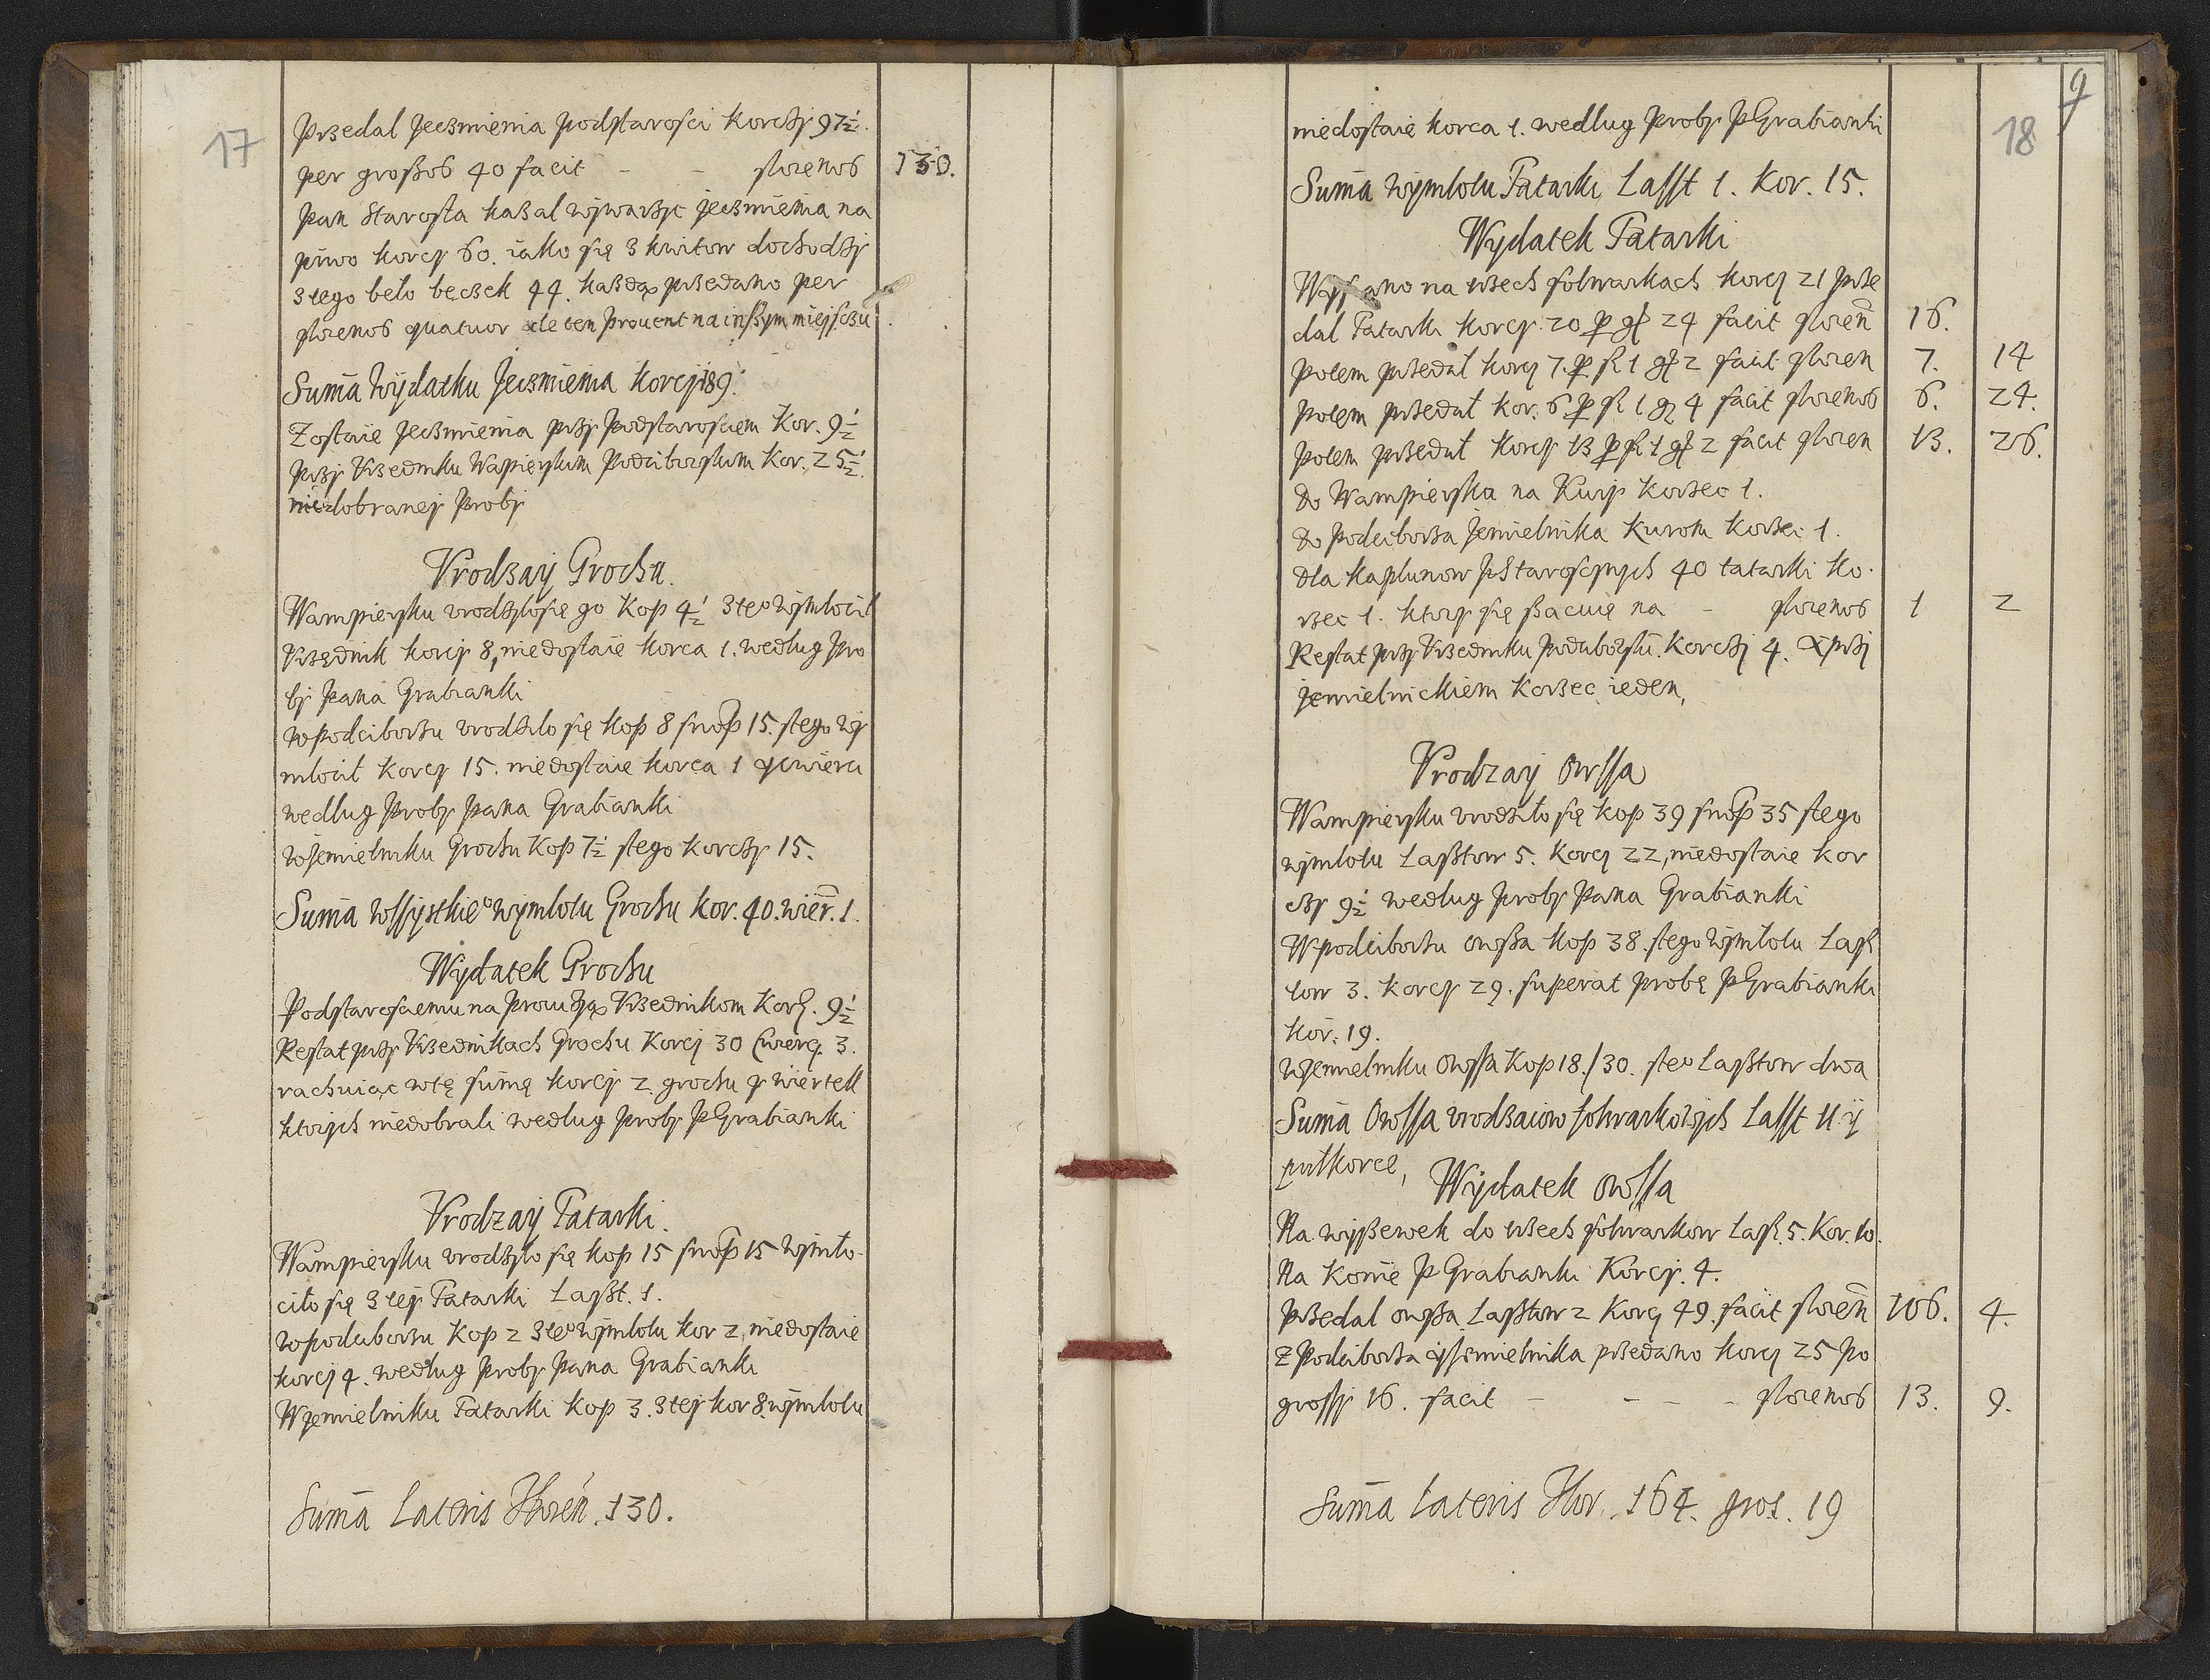 17
Przedal Jeczmienia podstarosci korczy 97½.
per großos 40 facit - - florenos 130.
Pan Starosta kazal wywarzyc jeczmienia na
piwo korcy 60. iako się z kwitow dochodzy
z tego beło beczek 44. każdą przedano per
florenos quatuor ale ten prouent na inszym miejsczu.
Suma̅ Wydatku Jeczmienia korcy 189.
Zostaie Jeczmienia przy Podstarosciem Kor. 9½
przy Vrzedniku Wapierskim Podciborskim Kor. 25½.
niedobranej proby
Vrodzay Grochu.
Wampiersku vrodzylosię go kop 4½ z teo wymlocił
Vrzędnik korcy 8, niedostaie korca 1. według pro
by Pana Grabianki
w podciborzu vrodzilo się kop 8 snop 15. stego wy
mlocił korcy 15. niedostaie korca 1 y cwierci
według proby Pana Grabianki
w Jemielniku Grochu kop 7½ stego korczy 15.
Suma̅ wssystkieo wymlotu Grochu kor. 40. wier. 1.
Wydatek Grochu
Podstarosciemu na prowizyą Vrzednikom Kor. 9½
Restat przy Vrzednikach Grochu Korcy 30 Cwierc. 3.
rachuiąc wtę sumę korcy 2. grochu y wiertel
ktorych niedobrali według proby P Grabianki
Vrodzay Tatarki.
Wampiersku vrodzyło się kop 15 snop 15 wymło-
ciło się z tej Tatarki Laszt. 1.
w podciborzu kop 2 z teo wymlotu kor 2, niedostaie
korcy 4. według proby Pana Grabianki
W Jemielniku Tatarki kop 3. z tej kor 8. wymlotu
Suma̅ Lateris Floren. 130.
9
18
niedostaie korca 1. według proby P Grabianki
Suma̅ wymlotu Tatarki Lasst 1. Kor. 15.
Wydatek Tatarki
Wysiano na trzech folwarkach korcy 21 prze
dal Tatarki korcy 20 p gr 24 facit floren̅ 16.
potem przedał korcy 7. p fl 1 gr 2 facit floren 7. 14
potem przedał kor. 6 p fl 1 gr 4 facit florenos 6. 24.
potem przedał korcy 13 p fl 1 gr 2 facit floren 13. 26.
Do Wampierska na Kury korzec 1.
do Podciborza Jemielnika kurom korzec 1.
dla kaplunow P Staroscynych 40 tatarki ko-
rzec 1. ktory się szacuię na - florenos 1 2
Restat przy Vrzedniku podciborski. korczy 4. y przy
jemielnickiem korzec ieden,
Vrodzay owssa
Wampiersku vrodziło się kop 39 snop 35 stego
wymlotu Lasztow 5. korcy 22, niedostaie kor
czy 9½ według proby Pana Grabianki
W podciborzu owssa kop 38. stego wymłotu Lasz
tow 3. korcy 29. superat probę P Grabianki
kor. 19.
w Jemielniku owssa kop 18./30. steo Lasztow dwa
Suma̅ Owssa vrodzaiow folwarkowych Lasst 11. y
pułkorce,
Wydatek owssa
Na wyssewek do trzech folwarkow Lasz. 5. Kor. 10.
Na Konie P Grabianki Korcy. 4.
przedal owssa Lasztow 2 Korcy 49. facit floren̅ 106. 4.
Z Podciborza y Jemielnika przedano korcy 25 po
grossy 16. facit - - - - florenos 13. 9.
Suma̅ Lateris Flor. 164. gros. 19